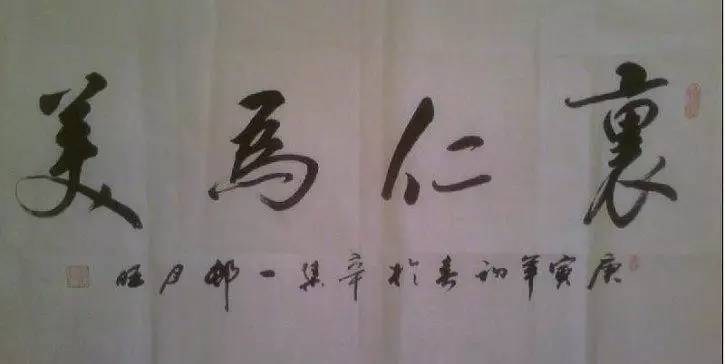 裏仁為美
庚寅年初春於辛集一邨月旺